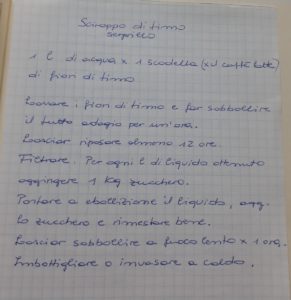 Sciroppo di timo
serpillo
1 l di acqua x 1 scodella (x il caffè latte)
di fiori di timo
Lavare i fiori di timo e far sobbollire
il tutto adagio per un'ora.
Lasciar riposare almeno 12 ore.
Filtrare. Per ogni l di liquido ottenuto
aggiungere 1 Kg zucchero.
Portare a ebollizione il liquido, agg.
lo zucchero e rimestare bene.
Lasciar sobbollire a fuoco lento x 1 ora.
Imbottigliare o invasare a caldo.